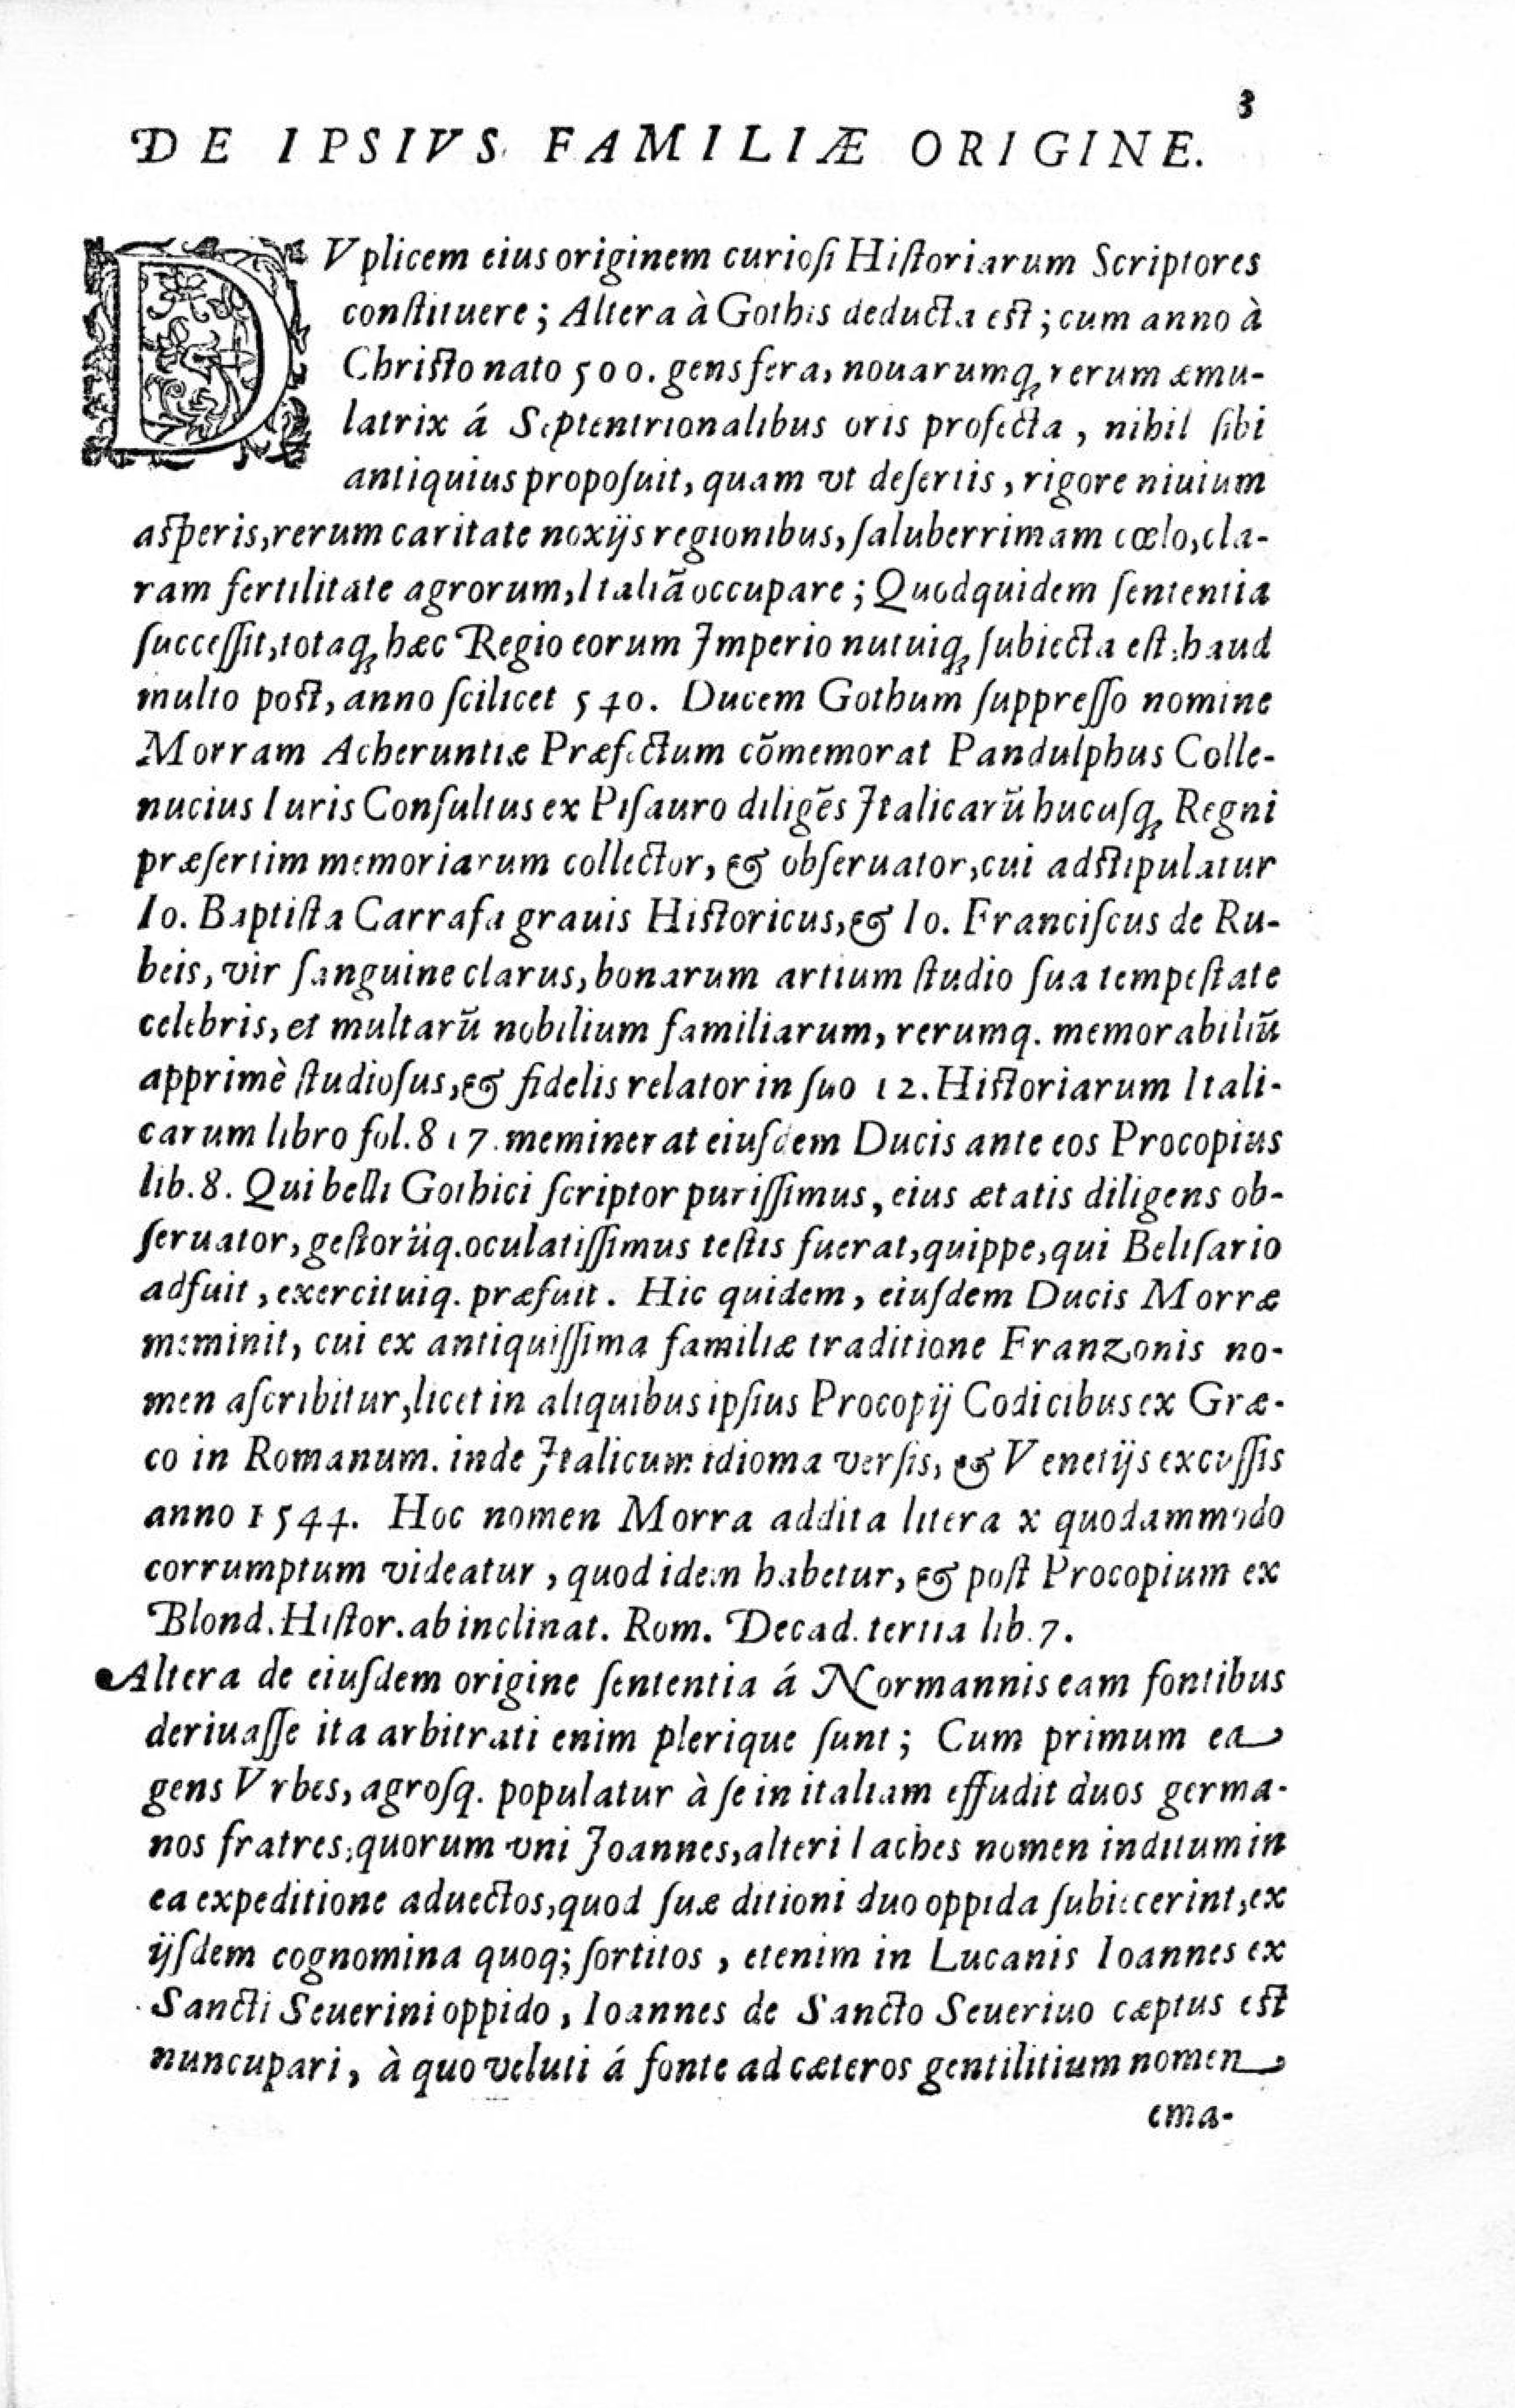 3
DE IPSIVS FAMILIÆ ORIGINE.
DVplicem eius originem curioſi Hiſtoriarum Scriptores
conſtituere; Altera à Gothis deducta eſt; cum anno à
Chriſto nato 500. gens fera, nouarumq; rerum æmu-
latrix á Septentrionalibus oris profecta, nihil ſibi
antiquius propoſuit, quam vt deſertis, rigore niuium
aſperis, rerum caritate noxijs regionibus, ſaluberrimam cœlo, cla-
ram fertilitate agrorum, Italiã occupare; Quod quidem ſententia
ſucceſſit, totaq; hæc Regio eorum Imperio nutuiq; ſubiecta eſt: haud
multo poſt, anno ſcilicet 540. Ducem Gothum ſuppreſſo nomine
Morram Acheruntiæ Præfectum cõmemorat Pandulphus Colle-
nucius Iuris Conſultus ex Piſauro diligẽs Italicarũ hucuſq; Regni
præſertim memoriarum collector, & obſeruator, cui adſtipulatur
Io. Baptiſta Carrafa grauis Hiſtoricus, & Io. Franciſcus de Ru-
beis, vir ſanguine clarus, bonarum artium ſtudio ſua tempeſtate
celebris, et multarũ nobilium familiarum, rerumq. memorabiliũ
apprimè ſtudioſus, & fidelis relator in ſuo 12. Hiſtoriarum Itali-
carum libro fol. 817. meminerat eiuſdem Ducis ante eos Procopius
lib. 8. Qui belli Gothici ſcriptor puriſſimus, eius ætatis diligens ob-
ſeruator, geſtorũq. oculatiſſimus teſtis fuerat, quippe, qui Beliſario
adfuit, exercituiq. præfuit. Hic quidem, eiuſdem Ducis Morræ
meminit, cui ex antiquiſſima familiæ traditione Franzonis no-
men aſcribitur, licet in aliquibus ipſius Procopij Codicibus ex Græ-
co in Romanum. inde Italicum idioma verſis, & Venetijs excuſſis
anno 1544. Hoc nomen Morra addita litera x quodammodo
corrumptum videatur, quod idem habetur, & poſt Procopium ex
Blond. Hiſtor. ab inclinat. Rom. Decad. tertia lib. 7.
Altera de eiuſdem origine ſententia á Normannis eam fontibus
deriuaſſe ita arbitrati enim plerique ſunt; Cum primum ea
gens Vrbes, agroſq. populatur à ſe in italiam effudit duos germa-
nos fratres, quorum vni Joannes, alteri Iaches nomen inditum in
ea expeditione aduectos, quod ſuæ ditioni duo oppida ſubiecerint, ex
ijſdem cognomina quoq; ſortitos, etenim in Lucanis Ioannes ex
Sancti Seuerini oppido, Ioannes de Sancto Seueriuo cæptus eſt
nuncupari, à quo veluti á fonte ad cæteros gentilitium nomen
ema-